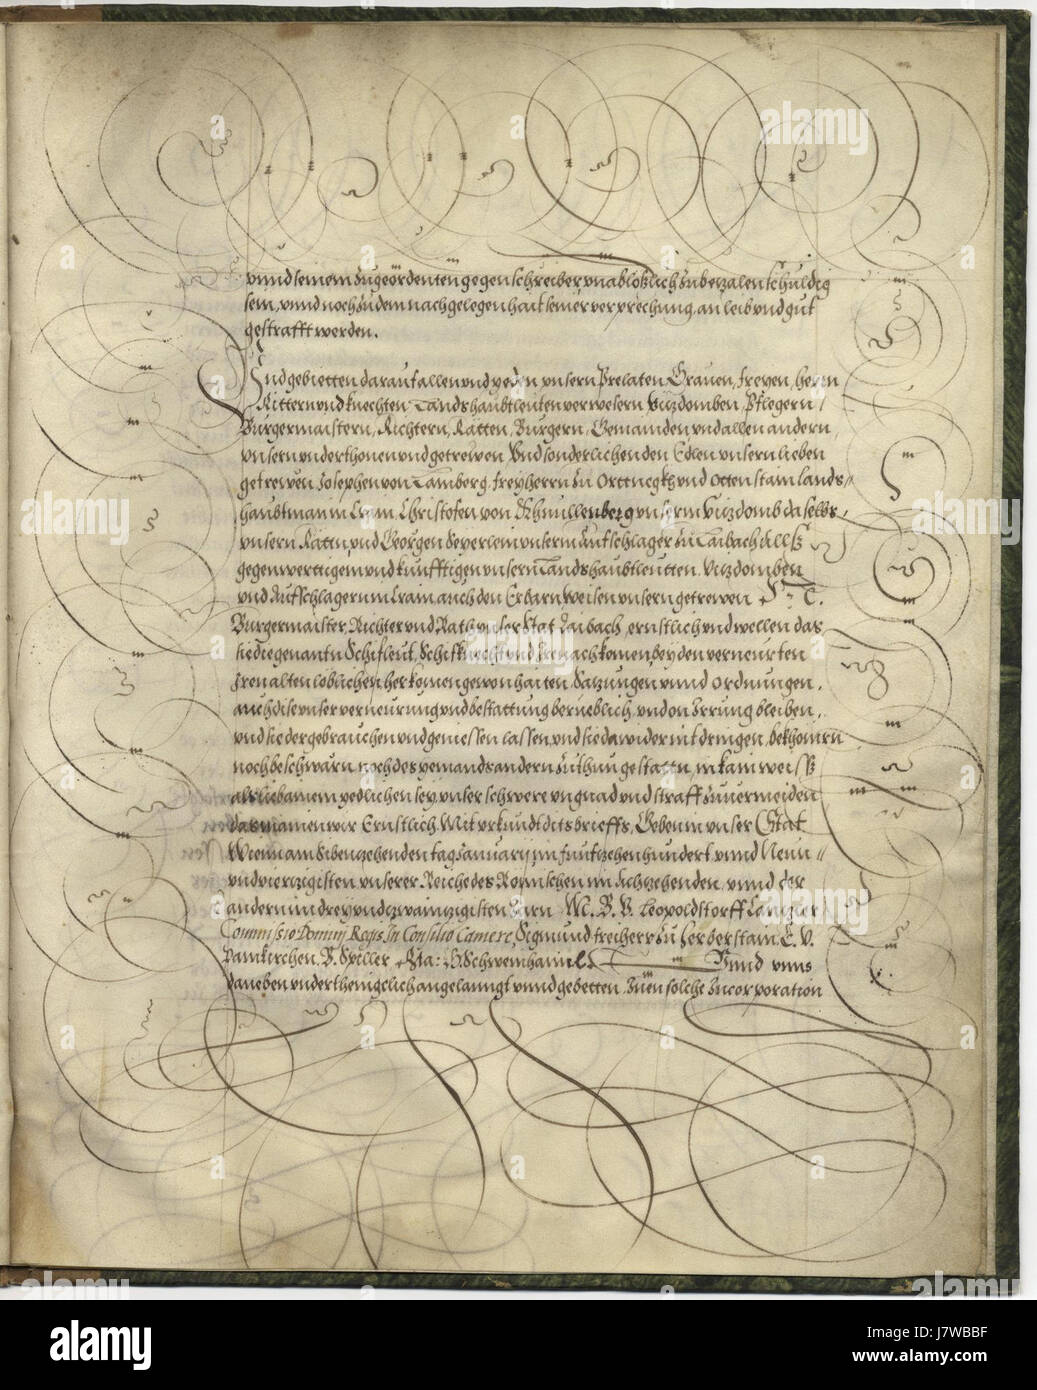 vnnd seinem zugeordenten gegenschreiber, vnablößlich zubezalen schuldig
sein, vnnd noch zu dem nach gelegenhait seiner verprechung, an leib vnd gut
gestrafft werden.
Vnd gebietten darauf allen vnd yeden vnsern Prelaten, Grauen, freyen, herrn
Rittern vnd knechten Landshaubtleuten verwesern, Vitzdomben, Pflegern,
Burgermaistern, Richtern, Rätten, Burgern, Gemainden vnd allen andern,
vnsern vnderthonen vnd getrewen Vnd sonderlichen den Edlen vnsern lieben
getrewen Josephen von Lamberg, freyherrn zu Orttnegkh vnd Ottenstain lands-
haubtman in Crain, Christofen von Khnullenberg vnserm Vitzdomb daselbs,
vnsern Rätn, vnd Georgen vnserm Aufschlager zu Laibach
gegenwerttigem vnd kunfftigen vnsern Landshaubtleutten, Vitzdomben
vnd Aufschlagern in Crain auch den Erbarn Weisen vnsern getrewen N. N.
Burgermaister, Richter vnd Rath vnser Stat Laibach, ernstlich vnd wellen das
sie die genantn Schifleut, Schifknecht vnd Ire nachkomen, bey den verneurten
Iren alten loblichen herkomen gewonhaiten, Satzungen vnnd Ordnungen,
auch diser vnser verneurung vnd bestattung berueblich vnd on Irrung bleiben,
vnd sie der gebrauchen vnd geniessen lassen, vnd sie dawider nit dringen, bekhomrn
noch beschwärn, noch des yemands andern zuthun gestattn, in kain weiss
als lieb ainem yedlichen sey, vnser schwere vngnad vnd straff zuuermeiden
das mainen wir Ernstlich, Mit vrkundt dits brieffs, Geben in vnser Stat
Wienn am Sibenzehenden tag January im funfzehenhundert vnnd Neun
vnd vierzigisten vnserer Reiche des Romischen im Achzehenden, vnnd der
andern im drey vnd zwainzigisten Jarn M. B. V. Leopoldstorff Cantzler
Commissio Domini Regis In Consilio Camere, Sigmund freiherr zu Herberstain E. V.
Pamkirchen. B. Spiller Sta: H. Schweinhaml. Vnnd vnns
daneben vndertheniglich angelanngt vnnd gebetten, Inen solche Incorporation
alamy
alamy
alamy
alamy
alamy
alamy
alamy
a
a
a
a
a
alamy
Image ID: J7WBBF
www.alamy.com